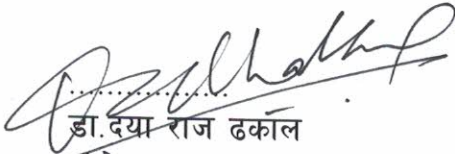 ....................
डा.दया राज ढकाल